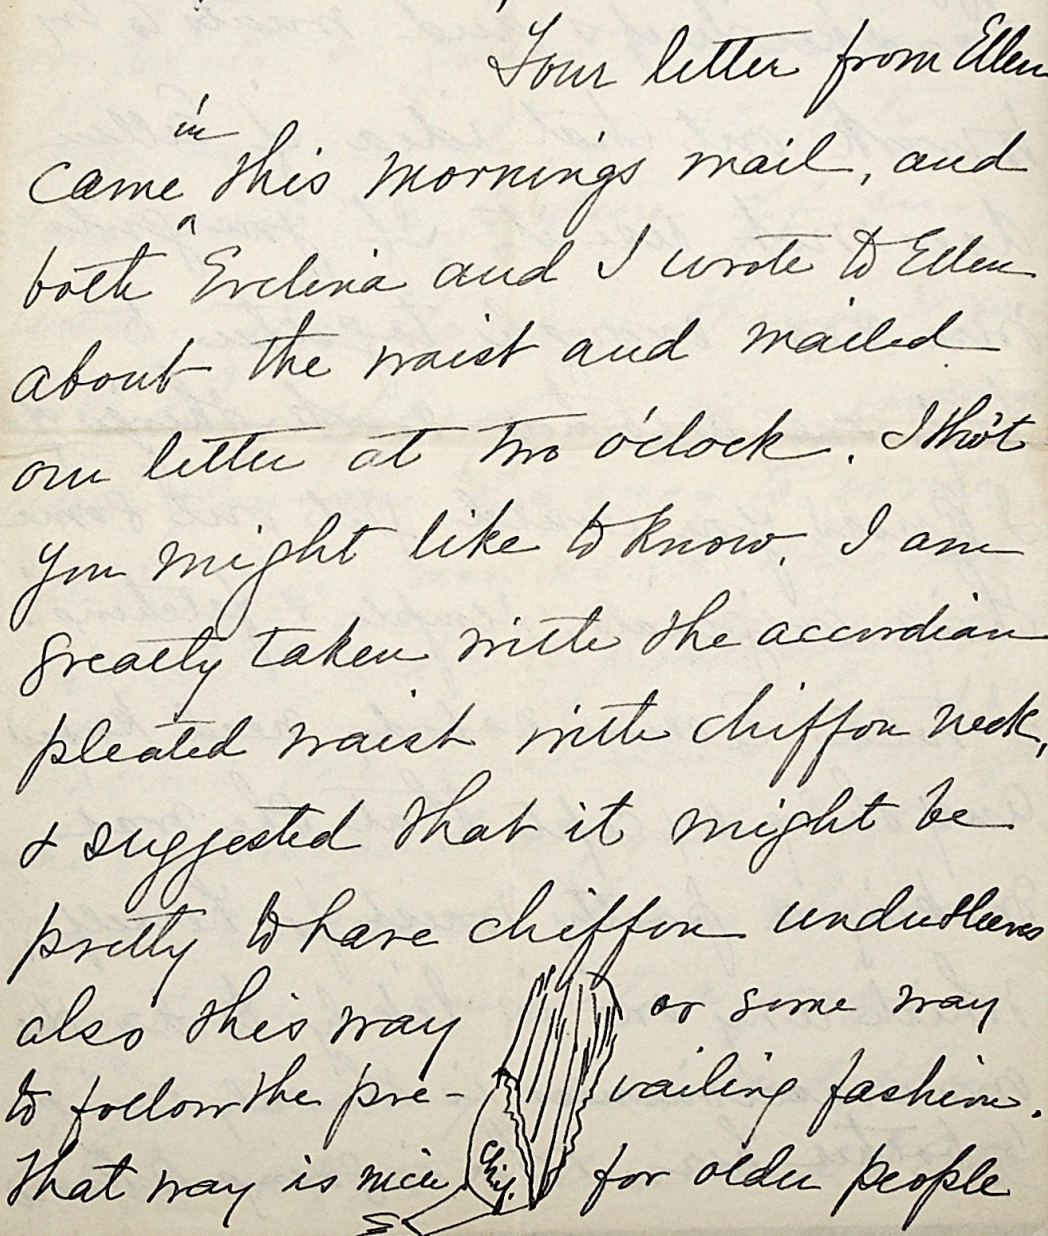 Your letter from Ellen
in
came this mornings mail, and
both Evelina and I wrote to Ellen
about the waist and mailed
our letter at two o'clock. I tho't
you might like to know. I am
greatly taken with the accordian
pleated waist with chiffon neck,
& suggested that it might be
pretty to have chiffon undersleeves
also this way or some way
to follow the pre- vailing fashion.
That way is nice for older people